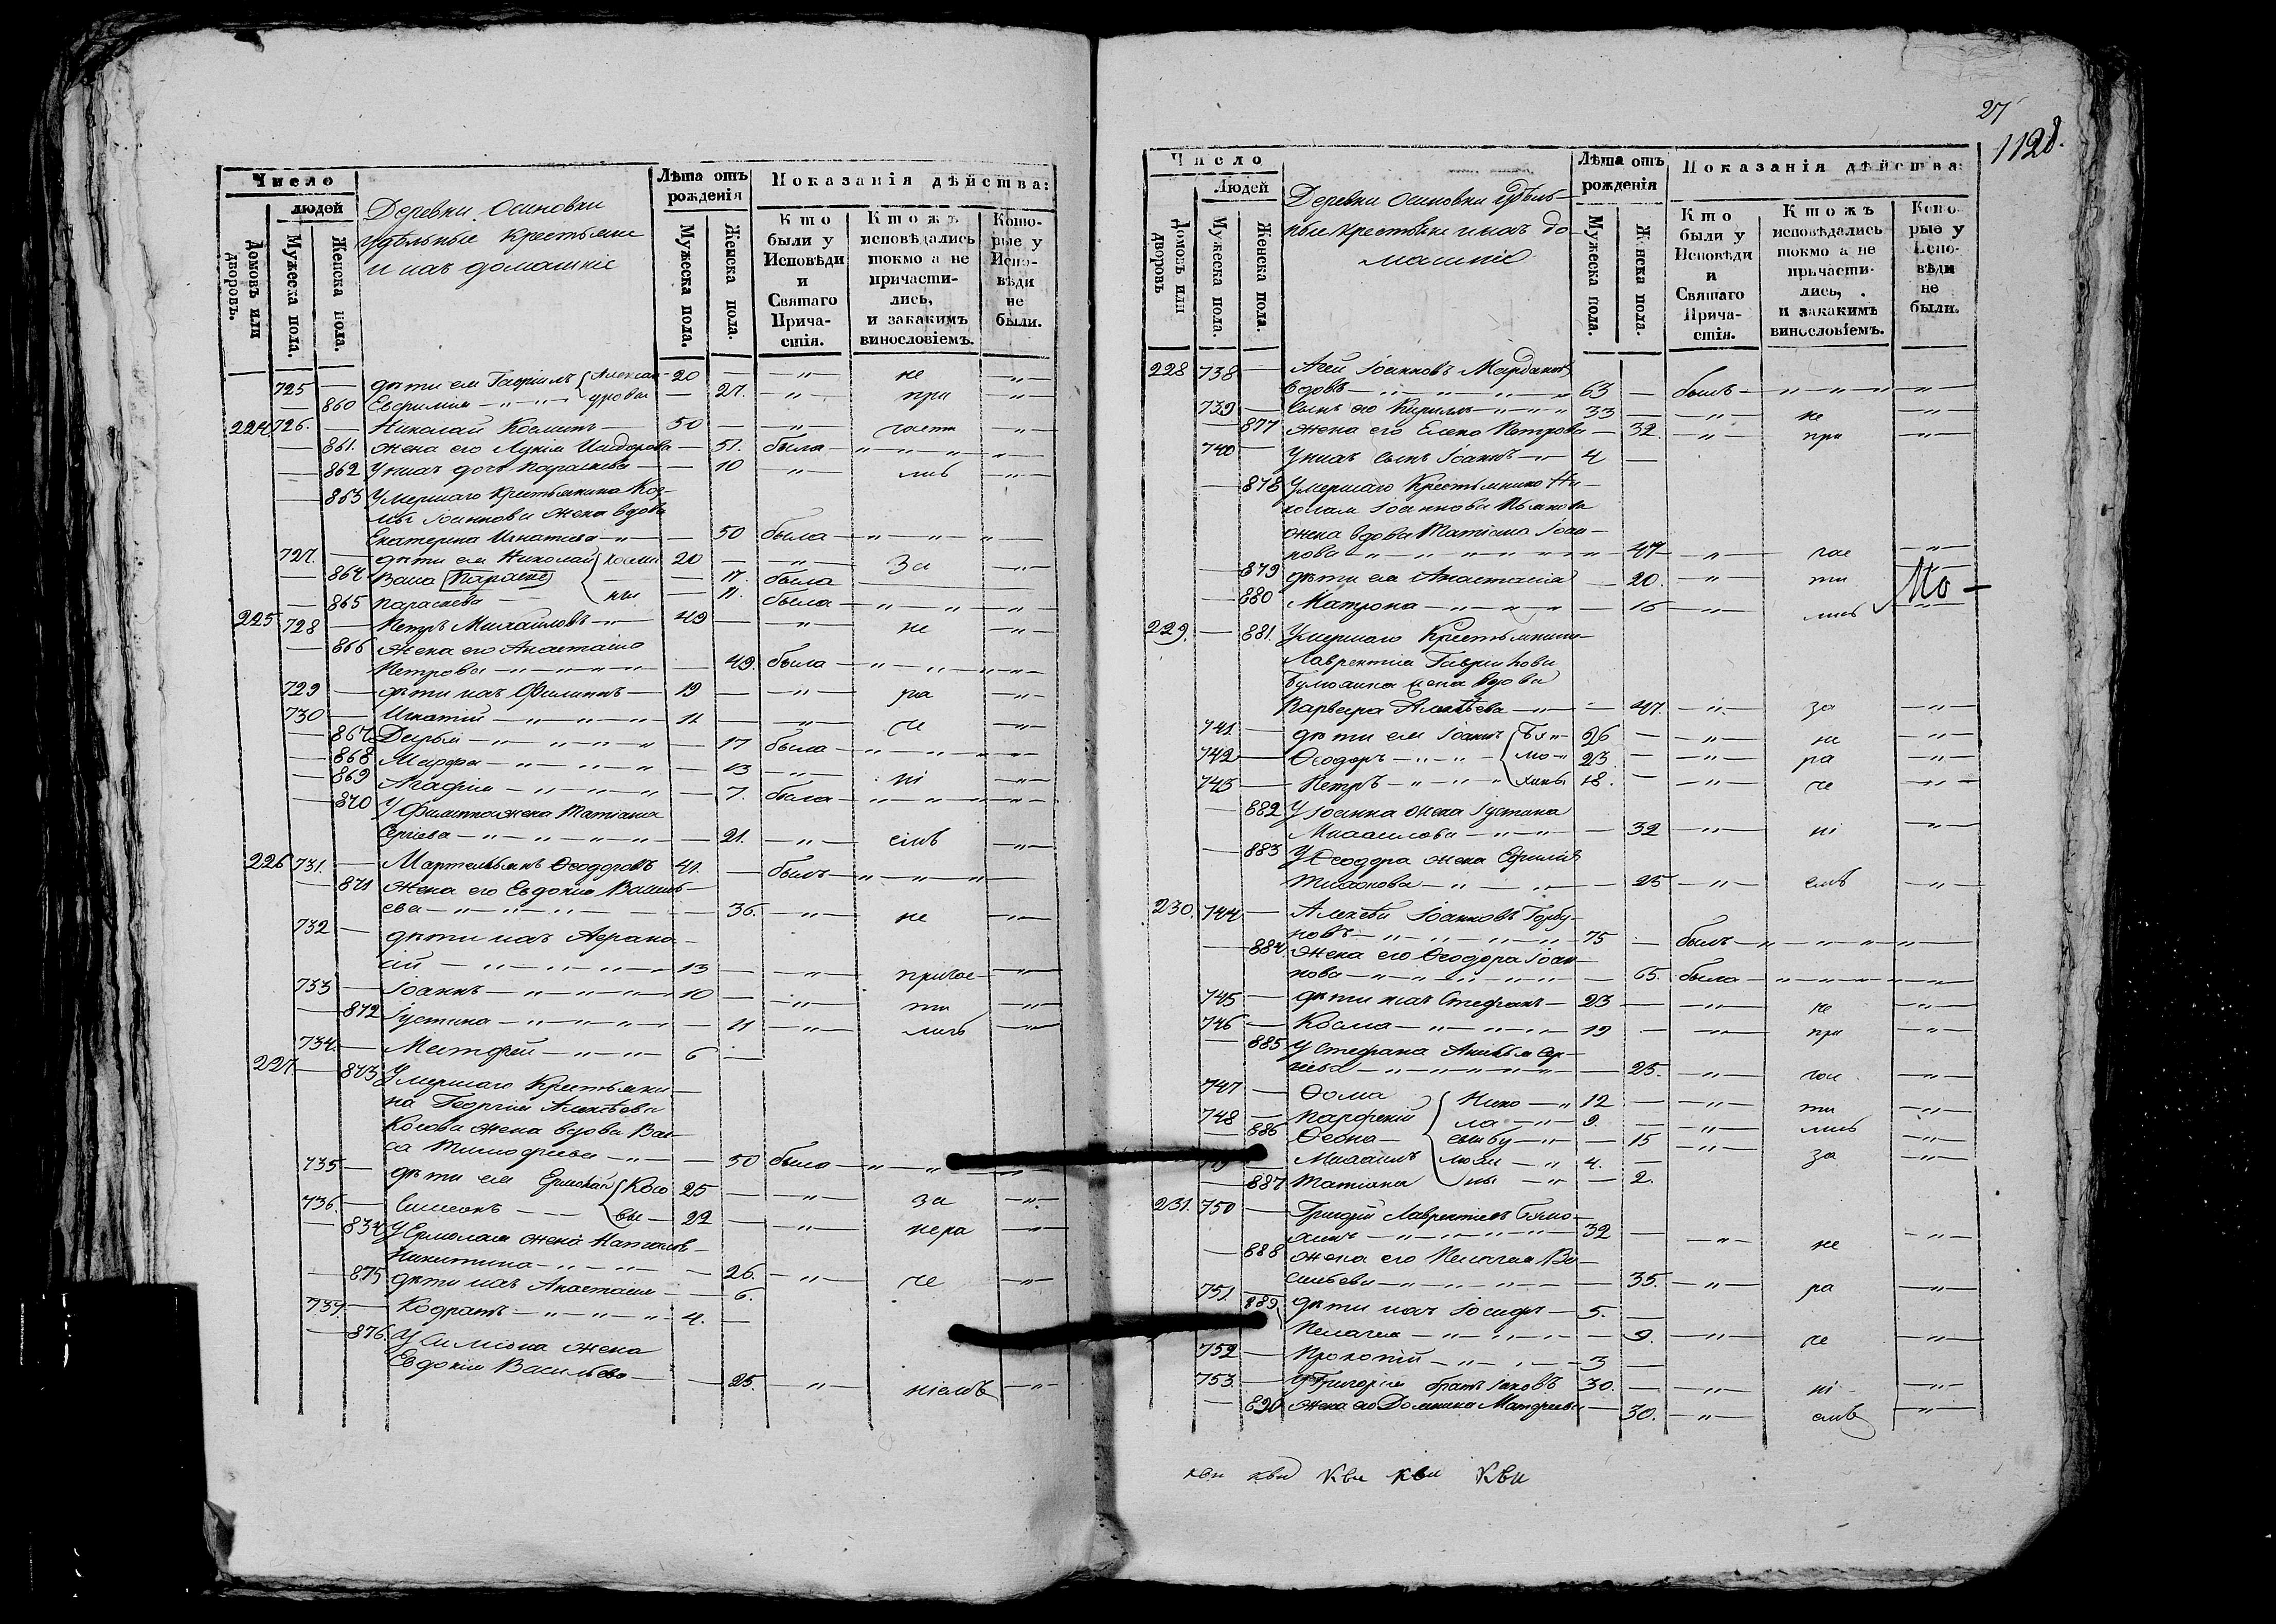 Число
людей
Домовъ или дворовъ.
Мужеска пола.
Женска пола.
Деревни Осиновки
удѣльные крестьяне
и ихъ домашніе
Лѣта отъ рожденія
Мужеска пола.
Женска пола.
Показанія дѣйства:
Кто были у Исповѣди и Святаго Причастія.
Ктожъ исповѣдались токмо а не причастились, и закакимъ винословіемъ.
Которые у Исповѣди не были.
725 — дѣти ея Гавріилъ Алексан- 20 — — " — не — " —
— 860 Евфимія — " — " — дровы — 27. — " — при — " —
224 726. — Николай Косминъ — 50 — — " — части — " —
— 861. жена его Лукія — 51. была — " — " — " —
— 862 У нихъ дочь Параскева — — 10 — " — лись — " —
— 863 Умершаго крестьянина Коз-
мы Іоаннова жена вдова
Екатерина Игнатіева — " — — 50 была — " — " — " —
727. — дѣти ея Николай Косми 20 — — " — За — " —
— 864 Васса Параске — 17. была
— 865 Параскева — ны — 11. была — " — " — "
225 728 — Петръ Михайловъ — " — 49 — — " — не — " —
— 866 жена его Анастасія
Петрова — " — " — " — " — — 49. была — " — " — " — " —
729 — дѣти ихъ Филиппъ — 19 — — " — ра — " —
730 — Игнатій — " — " — " 11 — — " — че — " —
— 867 Дарья — " — " — " — " — 17 была — " — " — " — " —
— 868 Марфа — " — " — " — " — 13 — " — ні — " —
— 869 Агафія — " — " — " — " — 7. была — " — " — " — " —
— 870 У Филиппа жена Татіана
Сергіева — " — " — " — " — — 21. — " — емъ — " —
226 731. — Мартемьянъ Ѳеодоровъ 41. — былъ — " — " — " —
— 871 жена его Евдокія Василь-
ева — " — " — " — — 36. — " — не — " —
732 — дѣти ихъ Аѳана-
сій — " — " — " — " — 13 — — " — причас- — " —
733 — Іоаннъ — " — " — " — " 10 — — " — ти — " —
— 872 Іустина — " — " — " — " — 11 — " — лись — " —
734. — Матфей — " — " — " — 6 —
227. — 873 Умершаго Крестьяни-
на Георгія Алексѣева
Косова жена вдова Вас-
са Тимофеева — " — — 50 была — " — " — " —
735 — дѣти ея Ермолай Косо 25 — — " — за — " —
736. — Симеонъ — — вы — 22 — — " — нера — " —
— 834 У Ермолая жена Наталія
Никитина — " — " — — 26. — " — че — " —
— 875 дѣти ихъ Анастасія — — 6.
737. — Кодратъ — " — " — " — " 4. —
— 876. У Симеона жена
Евдокія Васильева — — 25. — " — ніемъ — " —
27
1128.
Число
Людей
Домовъ или дворовъ
Мужеска пола.
Женска пола.
Деревни Осиновки удѣль-
ные крестьяне и ихъ до-
машніе
Лѣта отъ рожденія
Мужеска пола.
Женска пола.
Показанія дѣйства:
Кто были у Исповѣди и Святаго Причастія.
Ктожъ исповѣдались токмо а не причастились, и закакимъ винословіемъ.
Которые у Исповѣди не были.
228 738 — Агей Іоанновъ
вдовъ — " — " — " — " 63 — былъ — " — " — " — " —
739 — Сынъ его Кириллъ — " — " 33 — — " — не — " —
— 877 жена его Елена Петрова — 32. — " — при — " —
740 — У нихъ сынъ Іоаннъ — " 4 —
— 878 Умершаго Крестьянина Ни-
колая Іоаннова
жена вдова Татіана Іоан-
нова — " — " — " — " — " 47 — " — час — " —
— 879 дѣти ея Анастасія — 20. — " — ти
— 880 Матрона — " — " — " — 16 — " — лись — " —
229. — 881. Умершаго Крестьянина
Лаврентія Гаврилова
жена вдова
Варвара Алексѣева — " — — 47. — " — за — " —
741. — дѣти ея Іоаннъ Бя- " 26 — — " — не — " —
742 — Ѳеодоръ — " — " — мо- " 23. — — " — ра — " —
743 — Петръ — " — " — " 18. — — " — че — " —
— 882 У Іоанна жена Іустина
Михайлова — " — " — — 32 — " — ні — " —
— 883 У Ѳеодора жена
Тихонова — " — " — — 25 — " — емъ — " —
230. 744 — Алексѣй Іоанновъ Горбу-
новъ — " — " — " — " — 75 — былъ — " — " — " — " —
— 884 жена его Ѳеодора Іоан-
нова — " — " — " — " — — 65. была — " — " — " — " —
745 — дѣти ихъ Стефанъ — 23 — — " — не — " —
746 — Косма — " — " — " — 19 — — " — при — " —
— 885 У Стефана Сер-
гіева — " — " — " — " — — 25. — " — час — " —
747 — Ѳома Нико — " 12 — — " — ти — " —
748 — Парфеній ла — " — 9. — — " — лись — " —
— 886 Ѳеона — — " — — 15 — " — за — " —
— Михаилъ — " 4. —
— 887 Татіана ны — " — — 2.
231. 750 — Григорій Лаврентіевъ Бямо-
— " — " — " — " 32 — — " — не — " —
— 888 жена его Пелагія Ва-
сильева — " — " — " — — 35. — " — ра — " —
751. — дѣти ихъ Іосифъ — 5. —
889 Пелагея — " — " — " — 9. — " — че — " —
752 — Прокопій — " — " — 3 —
753. — У Григорія братъ Іаковъ 30. — — " — ні — " —
— 890 жена его Домника Матфеева — 30. — " — емъ — " —
кви кви Кви кви Кви